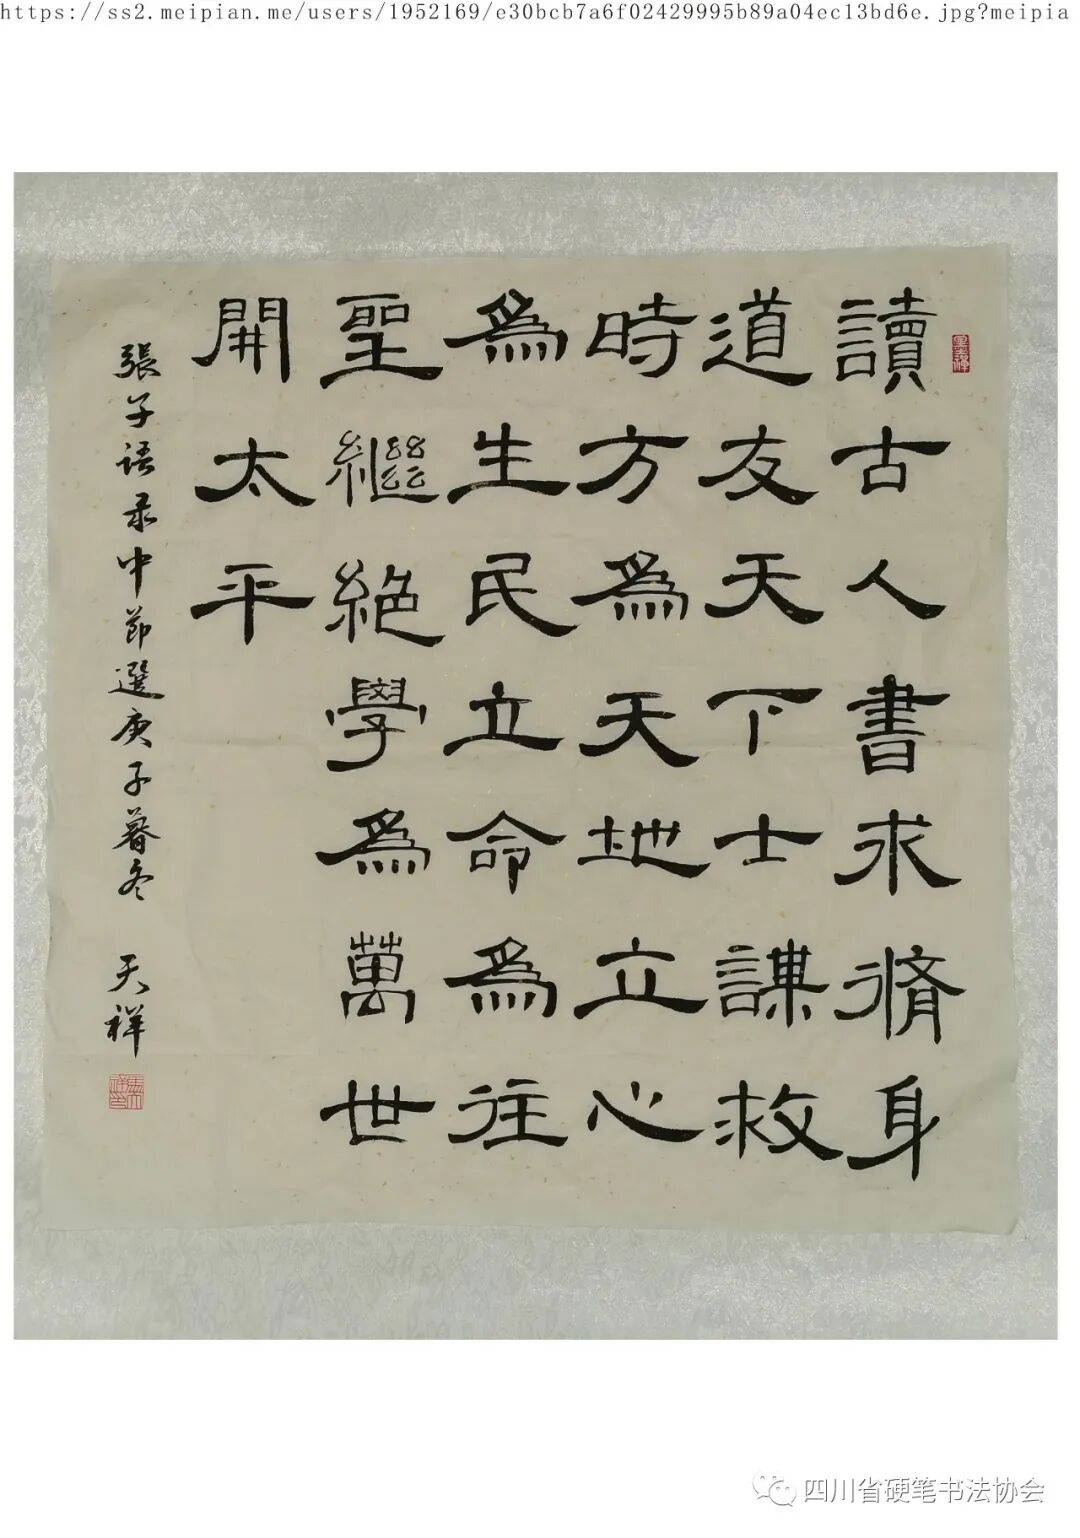 https://ss2.meipian.me/users/1952169/e30bcb7a6f02429995b89a04ec13bd6e.jpg?meipia
讀古人書求脩身
道友天下士謀救
時方為天地立心
為生民立命為往
聖繼絕學為萬世
開太平
張子语录中節選庚子暮冬 天祥
四川省硬笔书法协会